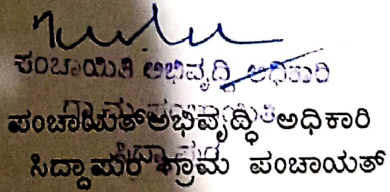 ಪಂಚಾಯಿತಿ ಅಭಿವೃದ್ಧಿ ಅಧಿಕಾರಿ
ಪಂಚಾಯತ್ ಅಭಿವೃದ್ಧಿ ಅಧಿಕಾರಿ
ಸಿದ್ದಾಪುರ ಗ್ರಾಮ ಪಂಚಾಯತ್